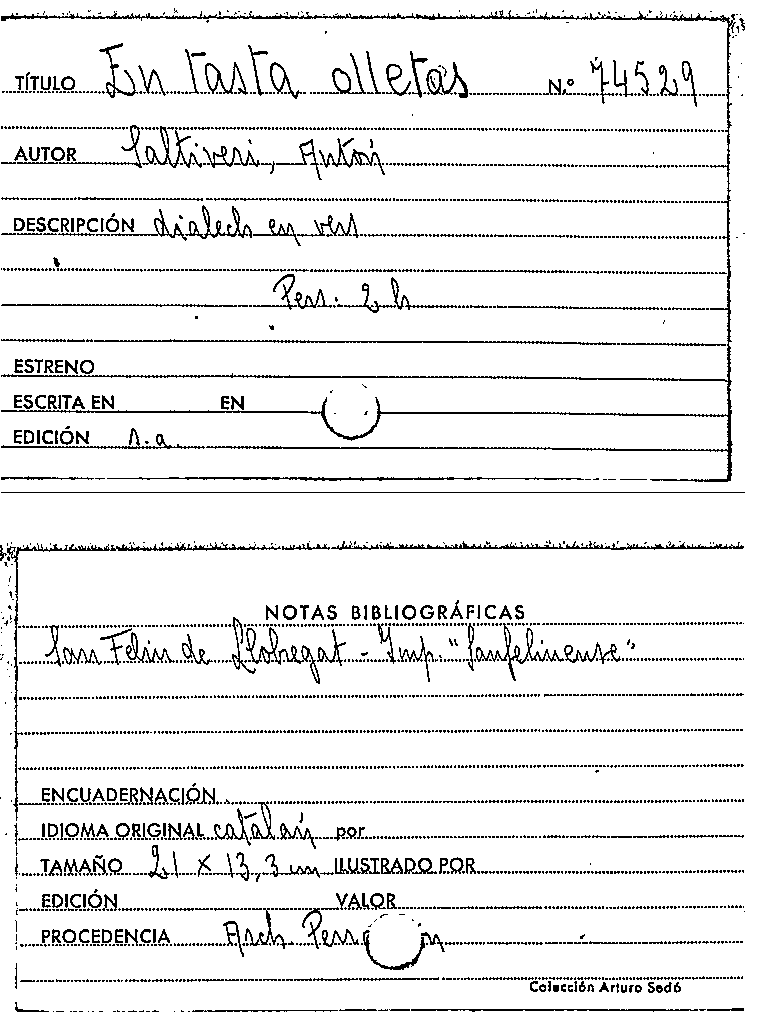 TÍTULO En Tasta olletas N.º 74529
AUTOR Saltiveri, Antón
DESCRIPCIÓN dialech en vers
Pers. 2 h
ESTRENO
ESCRITA EN EN
EDICIÓN s.a.
NOTAS BIBLIOGRÁFICAS
San Feliu de Llobregat - Imp. "Sanfeliuense"
ENCUADERNACIÓN
IDIOMA ORIGINAL catalán por
TAMAÑO 21 x 13,3 cm ILUSTRADO POR
EDICIÓN VALOR
PROCEDENCIA Arch.
Colección Arturo Sedó